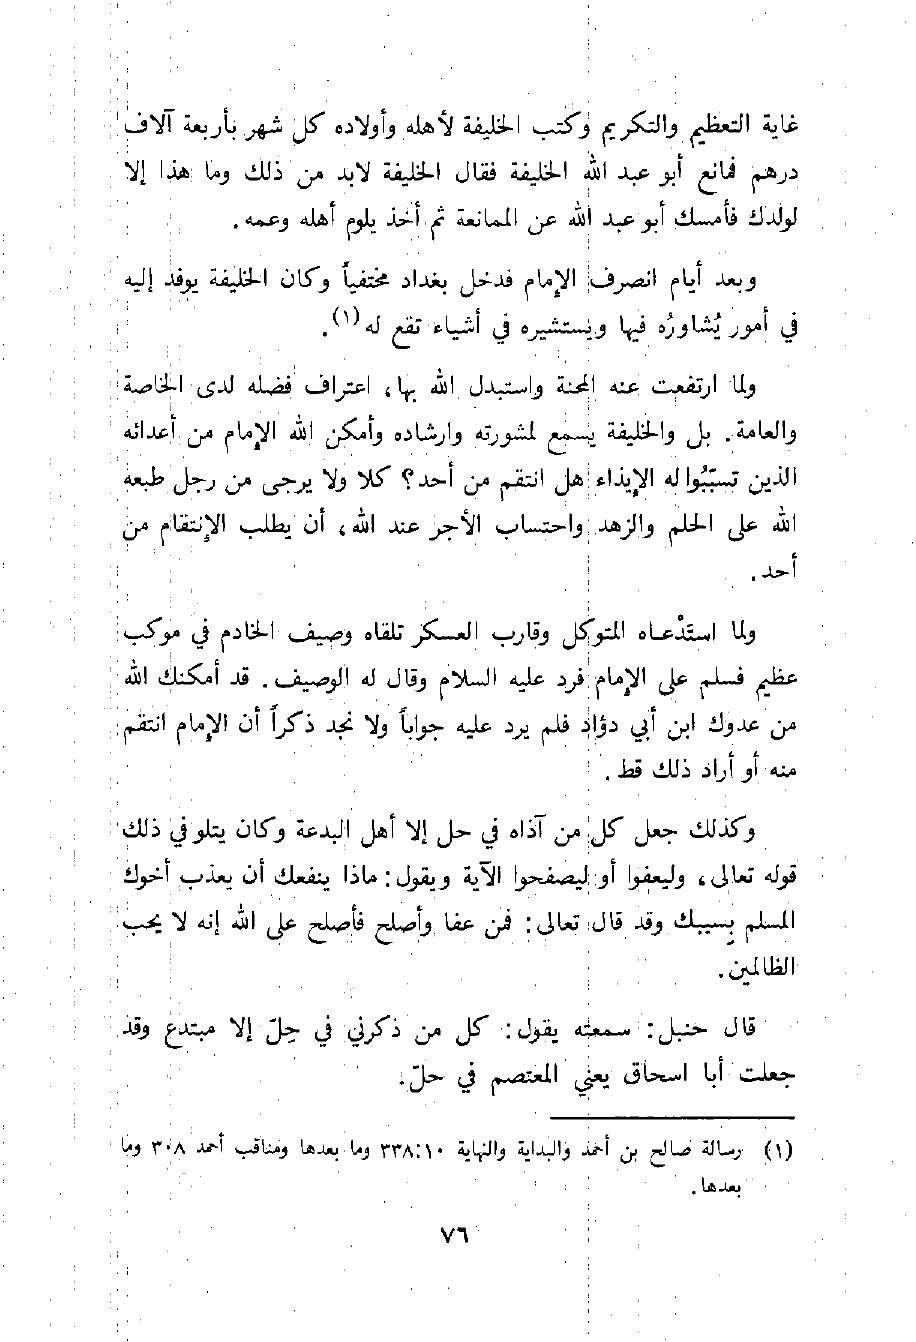 غاية التعظيم والتكريم وكتب الخليفة لأهله وأولاده كل شهر بأربعة آلاف
درهم فمانع أبو عبد الله الخليفة فقال الخليفة لابد من ذلك وما هذا إلا
لولدك فأمسك أبو عبد الله عن الممانعة ثم أخذ يلوم أهله وعمه.
وبعد أيام انصرف الإمام فدخل بغداد مختفياً وكان الخليفة يوفد إليه
في أمور يُشاورُه فيها ويستشيره في أشياء تقع له(١).
ولما ارتفعت عنه المحنة واستبدل الله بها، اعتراف فضله لدى الخاصة
والعامة. بل والخليفة يسمع لمشورته وارشاده وأمكن الله الإمام من أعدائه
الذين تسبّبُوا له الإيذاء هل انتقم من أحد؟ كلا ولا يرجى من رجل طبعه
الله على الحلم والزهد واحتساب الأجر عند الله، أن يطلب الإنتقام من
أحد.
ولما استَدْعاه المتوكل وقارب العسكر تلقاه وصيف الخادم في موكب
عظيم فسلم على الإمام فرد عليه السلام وقال له الوصيف. قد أمكنك الله
من عدوك ابن أبي دؤاد فلم يرد عليه جواباً ولا نجد ذكراً أن الإمام انتقم
منه أو أراد ذلك قط.
وكذلك جعل كل من آذاه في حل إلا أهل البدعة وكان يتلو في ذلك
قوله تعالى، وليعفوا أو ليصفحوا الآية ويقول: ماذا ينفعك أن يعذب أخوك
المسلم بِسببك وقد قال تعالى: فمن عفا وأصلح فأصلح على الله إنه لا يحب
الظالمين.
قال حنبل: سمعته يقول: كل من ذكرني في حِلّ إلا مبتدع وقد
جعلت أبا اسحاق يعني المعتصم في حلّ.
(١) رسالة صالح بن أحمد والبداية والنهاية ٣٣٨:١٠ وما بعدها ومناقب أحمد ٣٠٨ وما
بعدها.
٧٦